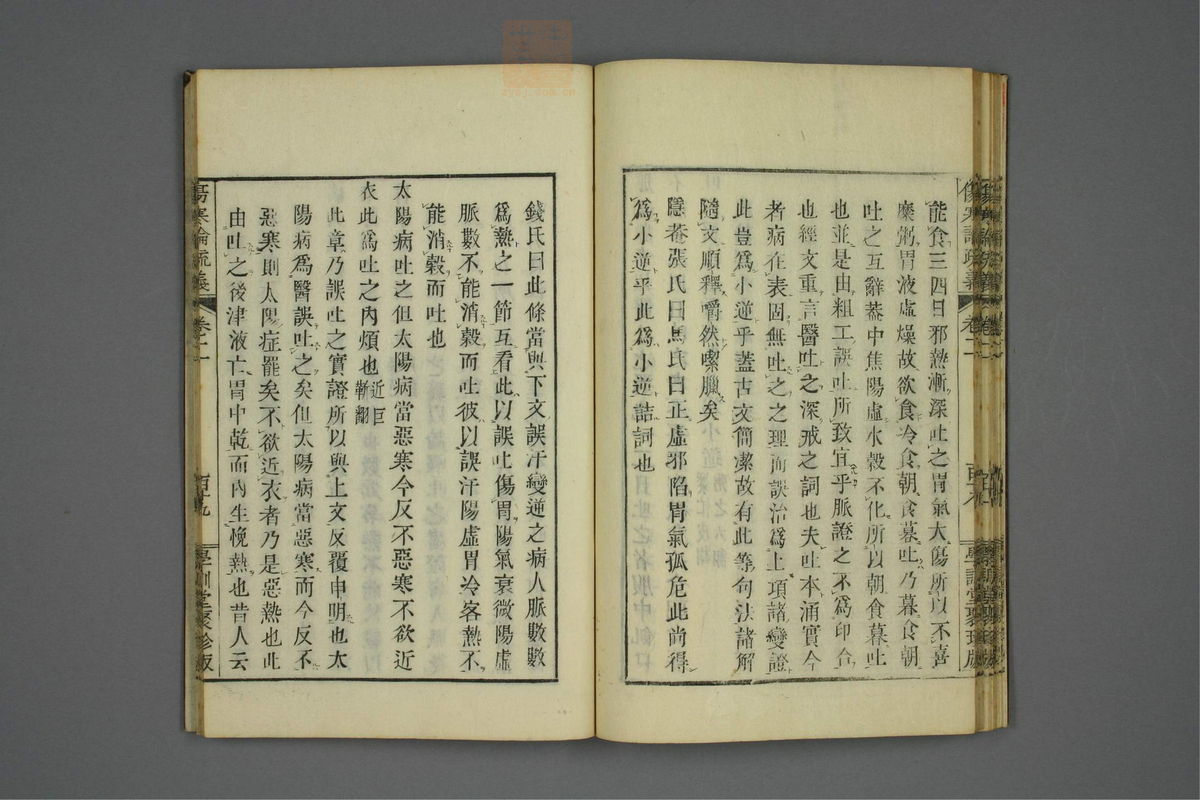 能食三四日邪熱漸深吐之胃氣大傷所以不喜
糜粥胃液虛燥故欲食冷食朝食暮吐乃暮食朝
吐之互辭蓋中焦陽虛水穀不化所以朝食暮吐
也並是由粗工誤吐所致宜乎脈證之不爲印合
也經文重言醫吐之深戒之詞也夫吐本涌實今
者病在表固無吐之之理而誤治爲上項諸變證
此豈爲小逆乎蓋古文簡潔故有此等句法諸解
隨文順釋嚼然喫臘矣
隱菴張氏曰馬氏曰正虛邪陷胃氣孤危此尚得
爲小逆乎此爲小逆詰詞也
傷寒論疏義
卷之二
學訓堂聚珍版
錢氏曰此條當與下文誤汗變逆之病人脈數數
爲熱之一節互看此以誤吐傷胃陽氣衰微陽虛
脈數不能消穀而吐彼以誤汗陽虛胃冷客熱不
能消穀而吐也
太陽病吐之但太陽病當惡寒今反不惡寒不欲近
衣此爲吐之內煩也近巨靳翻
此章乃誤吐之實證所以與上文反覆申明也太
陽病爲醫誤吐之矣但太陽病當惡寒而今反不
惡寒則太陽症罷矣不欲近衣者乃是惡熱也此
由吐之後津液亡胃中乾而內生悗熱也昔人云
傷寒論疏義
卷之二
學訓堂聚珍版